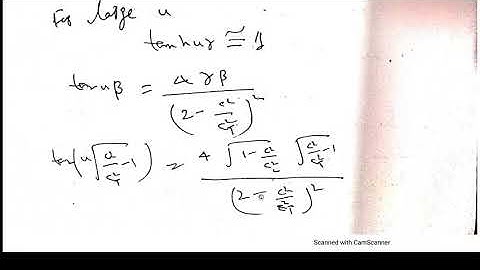 For large u
tanh uγ ≅ 1
tan uβ = 4γβ / (2 - c²/c_T²)²
tan(u√(c²/c_T² - 1)) = 4 √(1 - c²/c_L²) √(c²/c_T² - 1) / (2 - c²/c_T²)²
Scanned with CamScanner